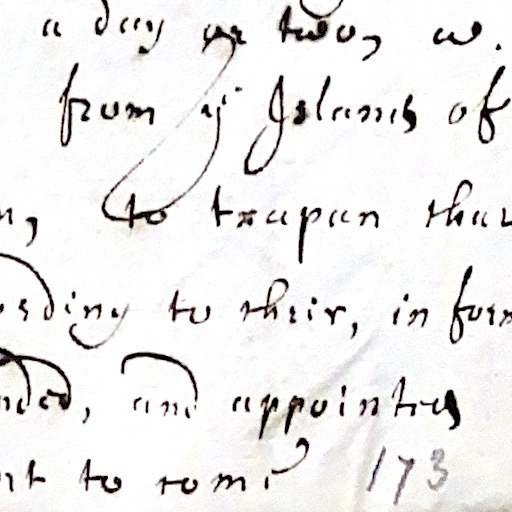 a day or two, w.
from yͤ Islands of
to trapan thar
ording to their, in form
nded, and appointed
rt to come 173